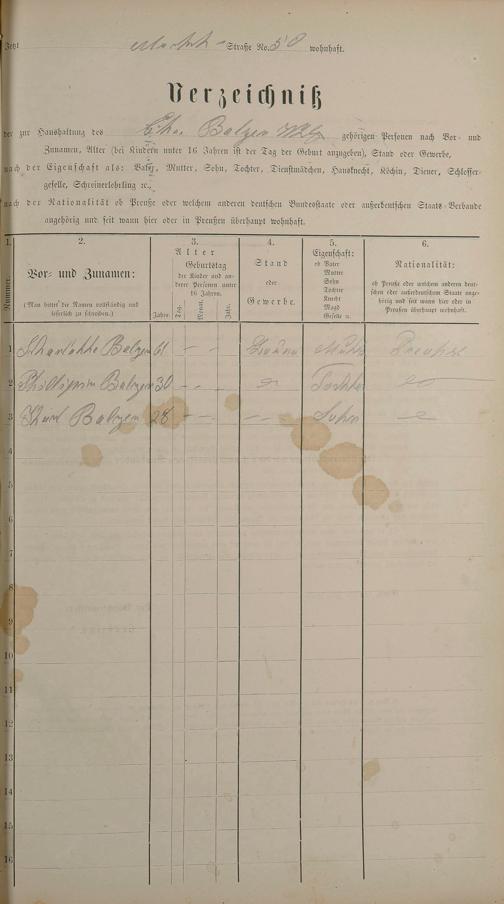 Jetzt Markt-Straße No. 50 wohnhaft.
Verzeichniß
der zur Haushaltung des Balzer gehörigen Personen nach Vor- und
Zunamen, Alter (bei Kindern unter 16 Jahren ist der Tag der Geburt anzugeben), Stand oder Gewerbe,
nach der Eigenschaft als: Vater, Mutter, Sohn, Tochter, Dienstmädchen, Hausknecht, Köchin, Diener, Schlosser-
geselle, Schreinerlehrling ꝛc.,
nach der Nationalität ob Preuße oder welchem anderen deutschen Bundesstaate oder außerdeutschen Staats-Verbande
angehörig und seit wann hier oder in Preußen überhaupt wohnhaft.
1. 2. 3. 4. 5. 6.
Nummer.
Vor- und Zunamen:
(Man bittet die Namen vollständig und
leserlich zu schreiben.)
Alter
Geburtstag
der Kinder und an-
derer Personen unter
16 Jahren.
Jahre. Tag. Monat. Jahr.
Stand
oder
Gewerbe.
Eigenschaft:
ob Vater
Mutter
Sohn
Tochter
Knecht
Magd
Geselle u.
Nationalität:
ob Preuße oder welchem anderen deut-
schen oder außerdeutschen Staate ange-
hörig und seit wann hier oder in
Preußen überhaupt wohnhaft.
1 Balzer 61 - - Mutter Preuße
2 Balzer 30 - - Tochter
3 Balzer 28 - - Sohn
4
5
6
7
8
9
10
11
12
13
14
15
16